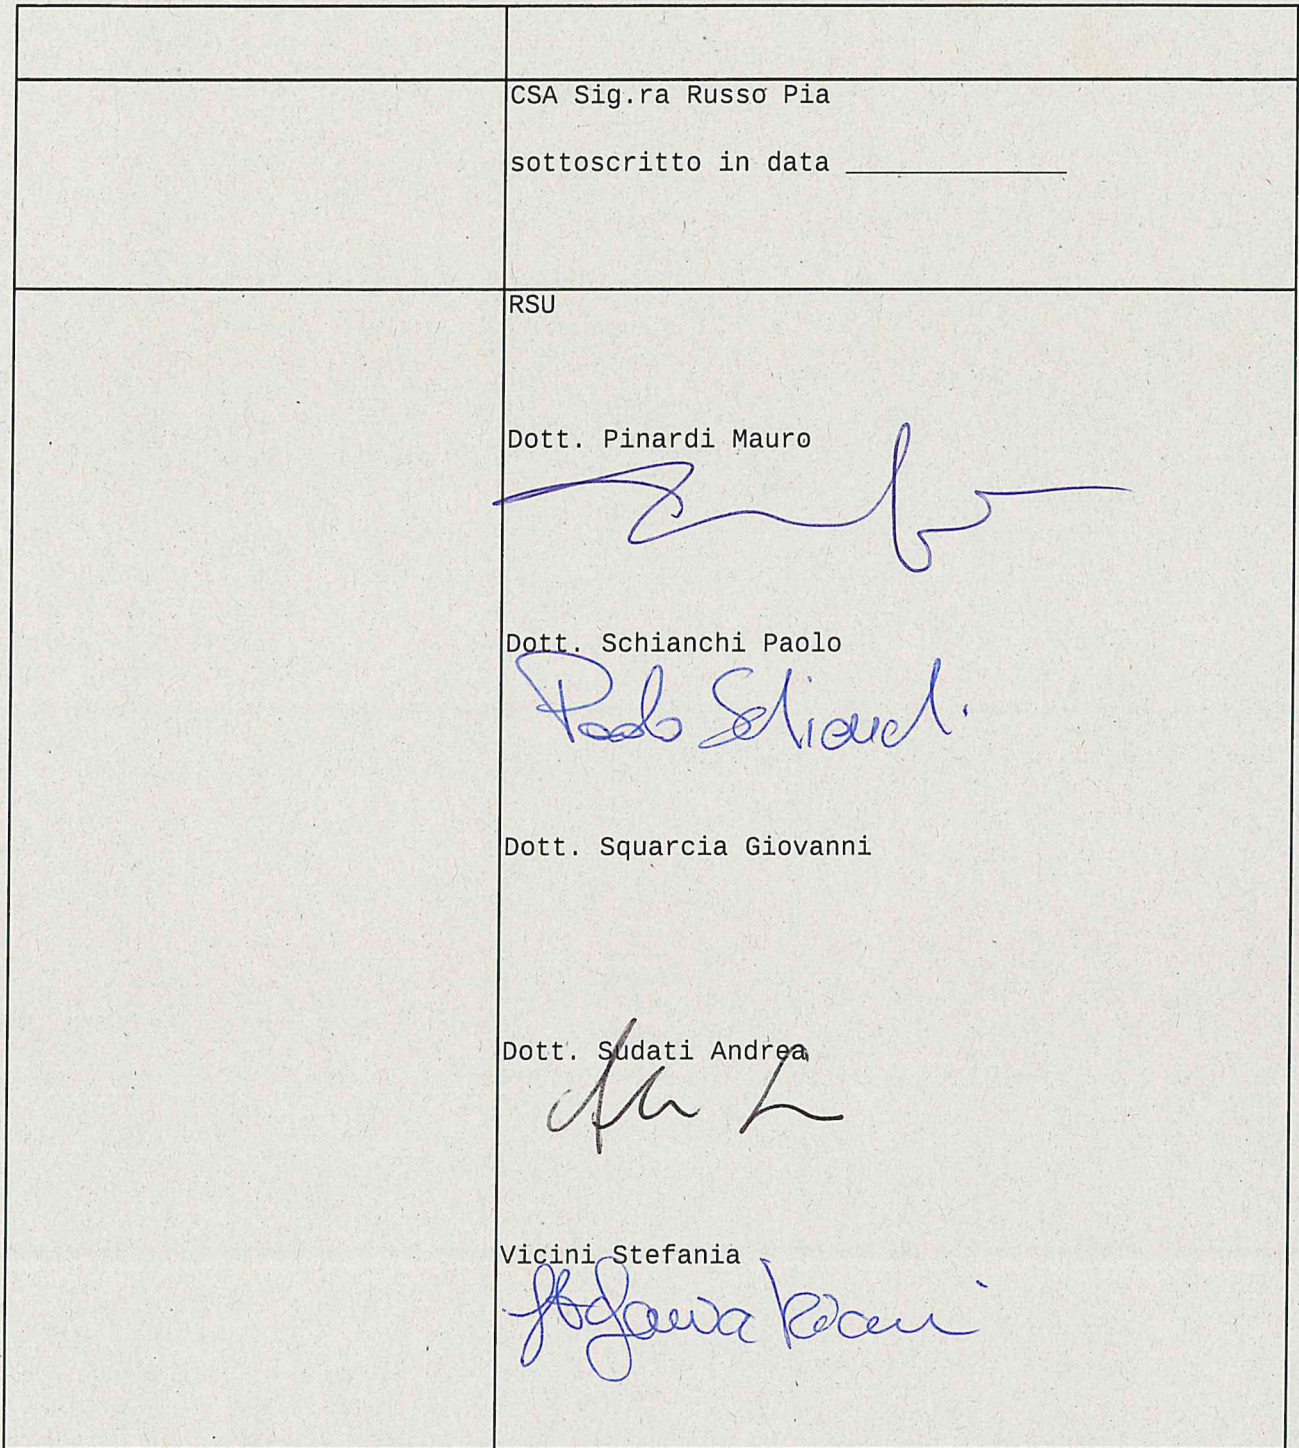 CSA Sig.ra Russo Pia
sottoscritto in data ______________
RSU
Dott. Pinardi Mauro
Dott. Schianchi Paolo
Paolo Schianchi
Dott. Squarcia Giovanni
Dott. Sudati Andrea
Vicini Stefania
Stefania Vicini